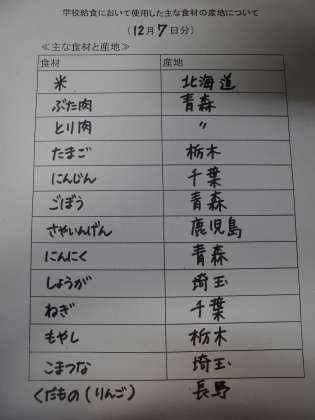 学校給食において使用した主な食材の産地について
(12月7日分)
≪主な食材と産地≫
食材 産地
米 北海道
ぶた肉 青森
とり肉 〃
たまご 栃木
にんじん 千葉
ごぼう 青森
さやいんげん 鹿児島
にんにく 青森
しょうが 埼玉
ねぎ 千葉
もやし 栃木
こまつな 埼玉
くだもの(りんご) 長野